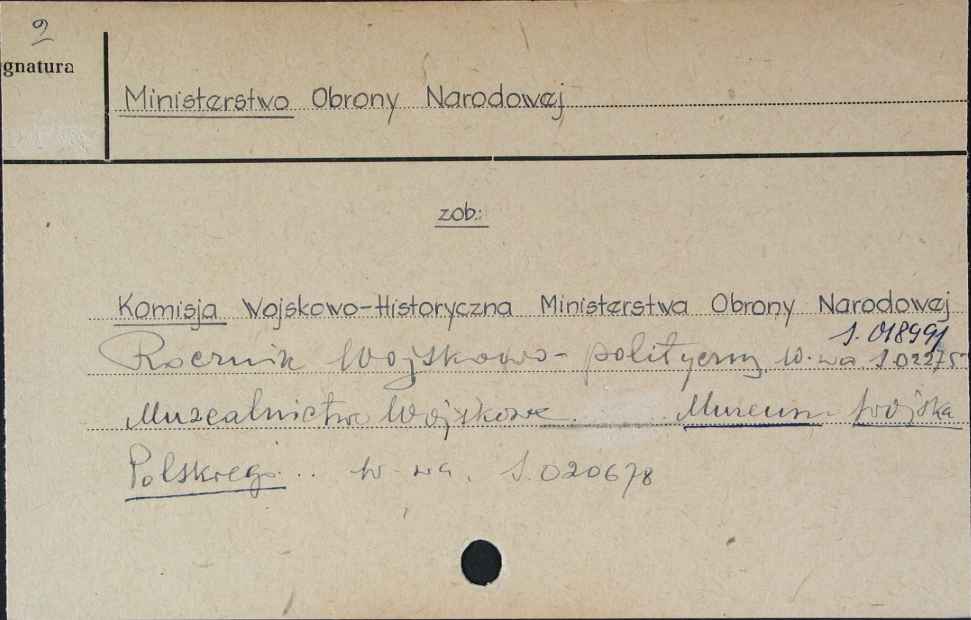 9
gnatura
Ministerstwo Obrony Narodowej
zob.:
Komisja Wojskowo-Historyczna Ministerstwa Obrony Narodowej
S. 018991
Rocznik Wojskowo-polityczny W-wa. S.02275
Muzealnictwo Wojskowe Muzeum Wojska
Polskiego.. W-wa. S.020678